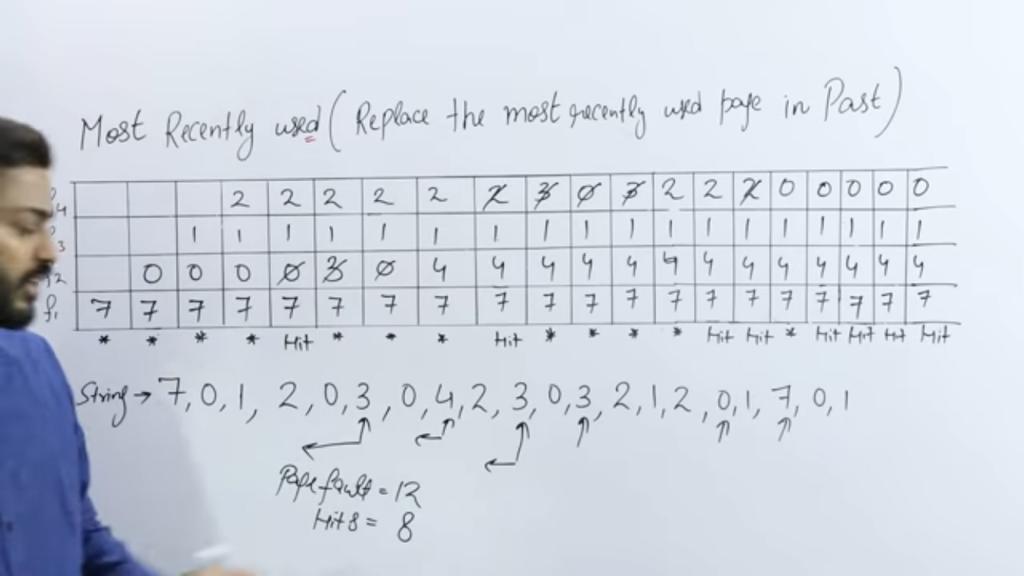 Most Recently used (Replace the most recently used page in Past)
4 2 2 2 2 2 2 3 0 3 2 2 2 0 0 0 0 0
3 1 1 1 1 1 1 1 1 1 1 1 1 1 1 1 1 1 1
2 0 0 0 0 3 0 4 4 4 4 4 4 4 4 4 4 4 4 4
f1 7 7 7 7 7 7 7 7 7 7 7 7 7 7 7 7 7 7 7 7
* * * * Hit * * * Hit * * * * Hit Hit * Hit Hit Hit Hit
String → 7, 0, 1, 2, 0, 3, 0, 4, 2, 3, 0, 3, 2, 1, 2, 0, 1, 7, 0, 1
Page fault = 12
Hits = 8